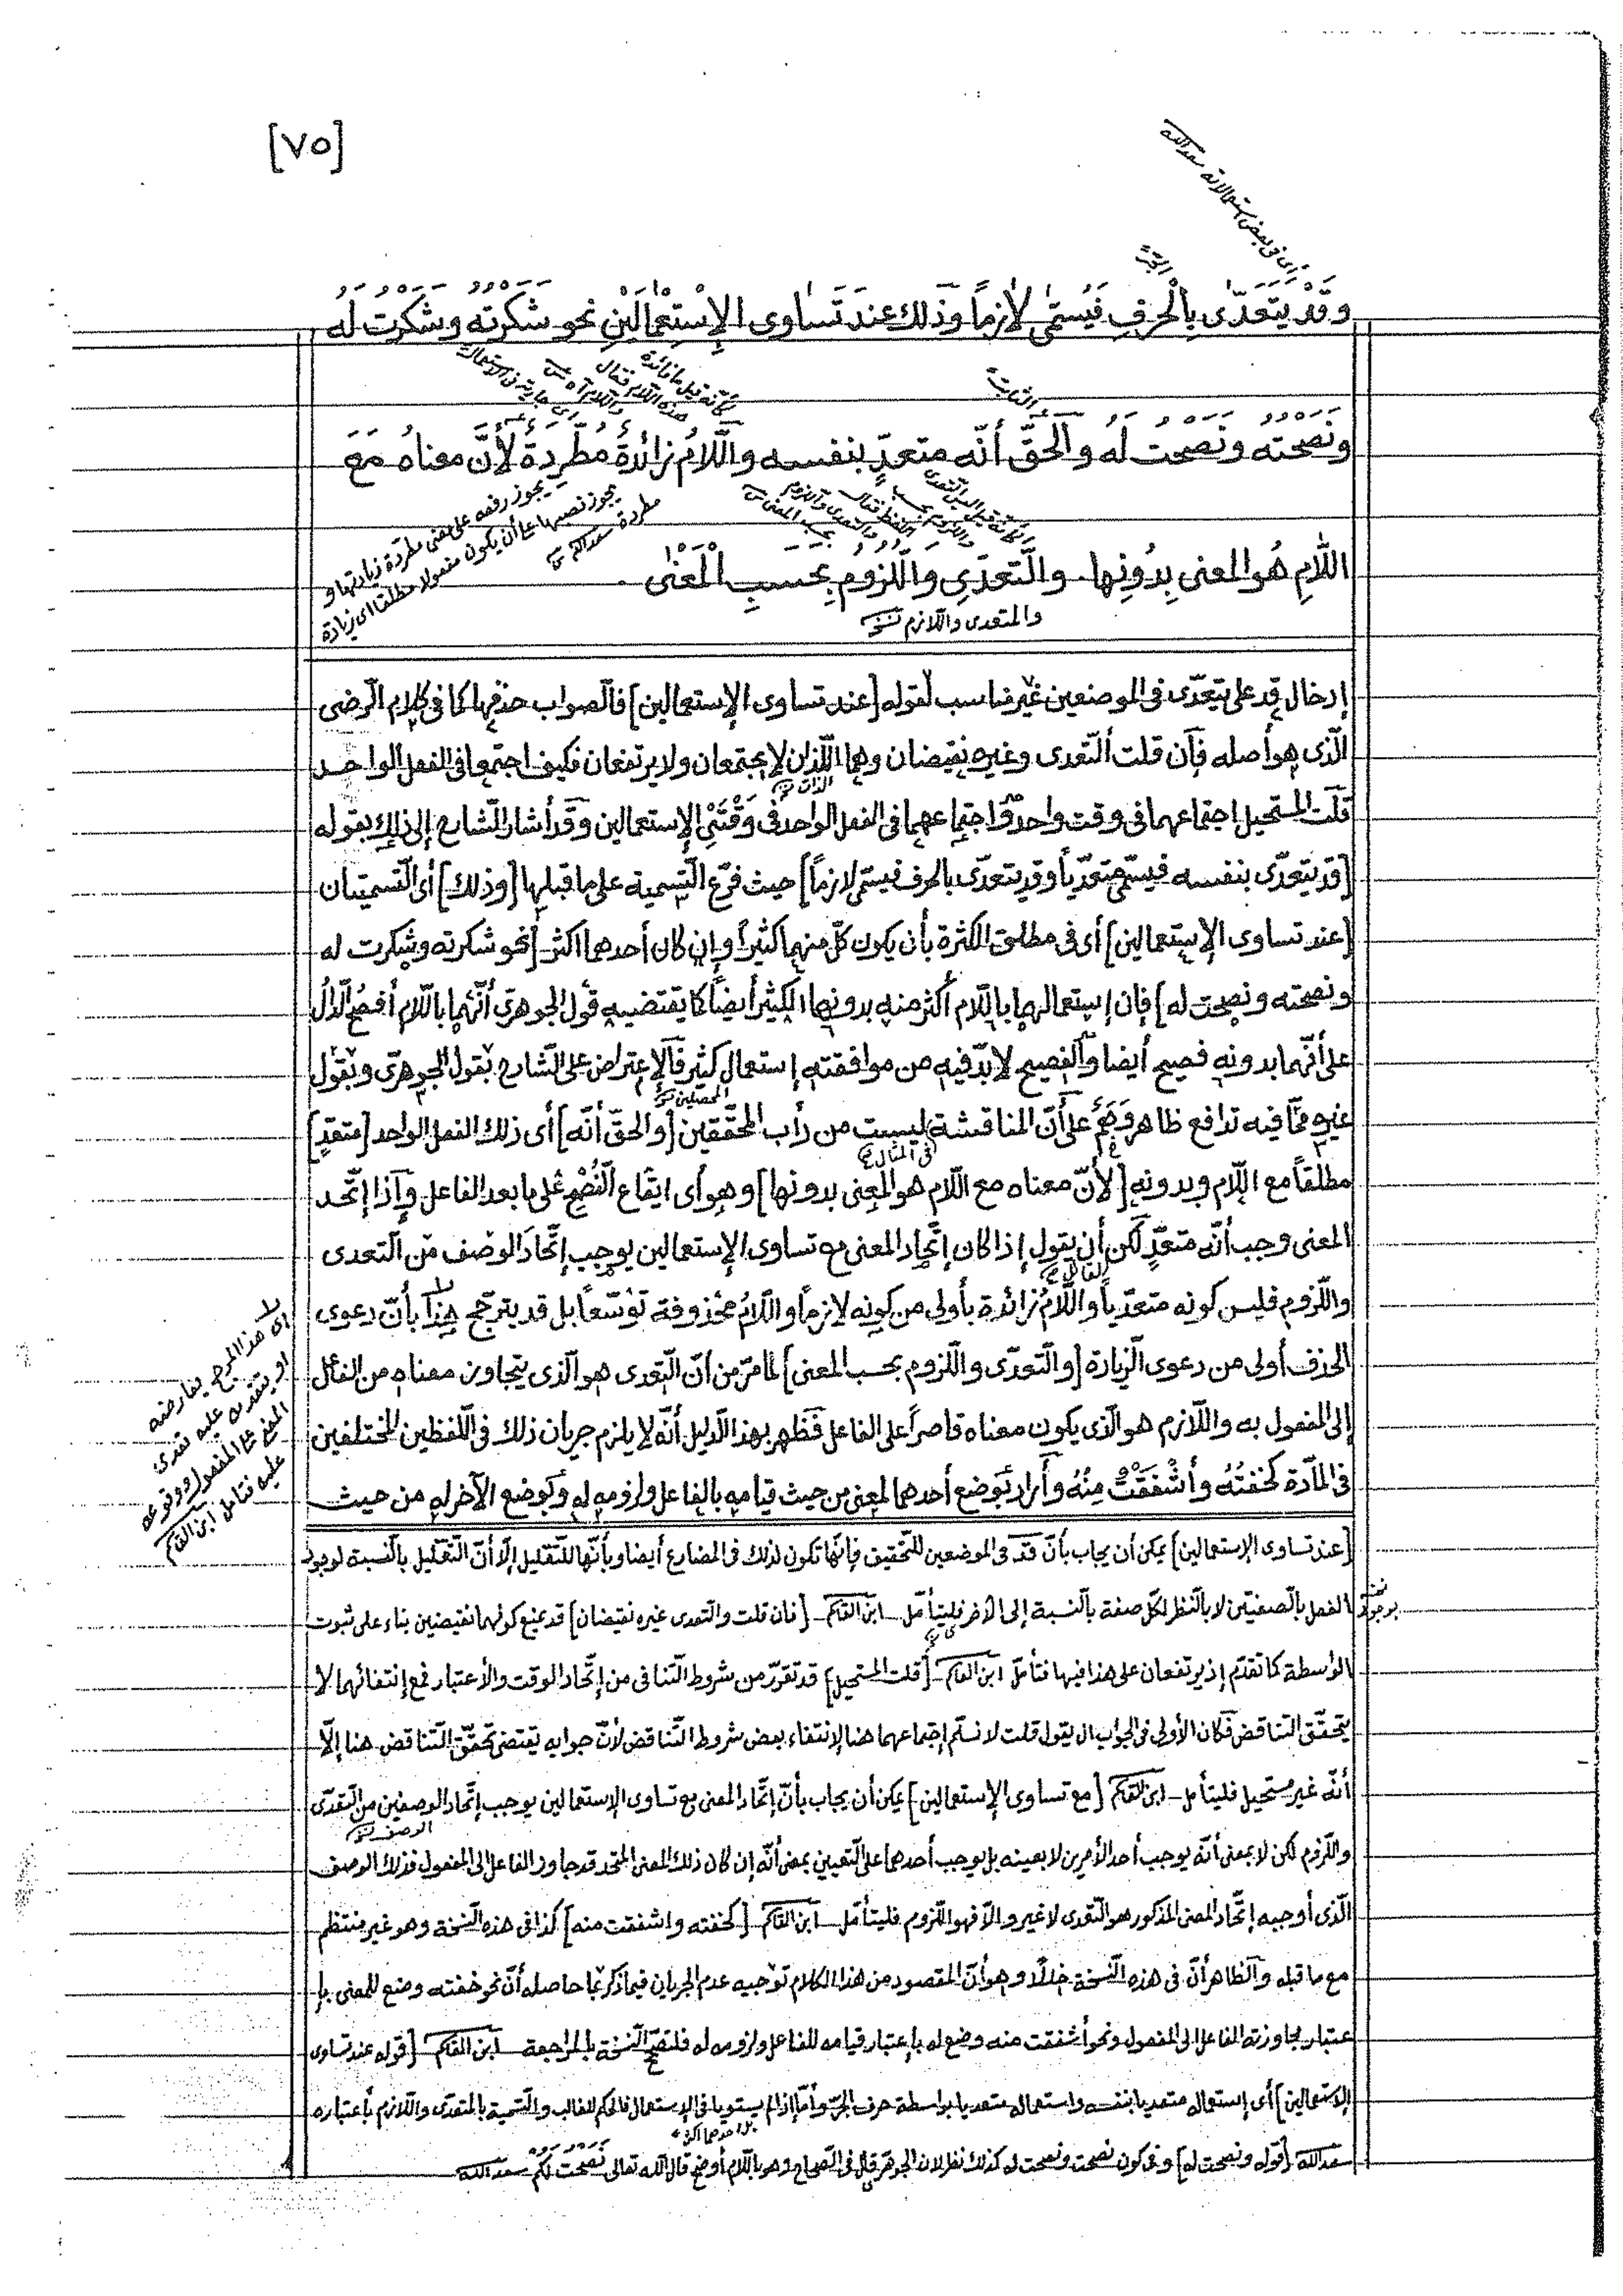 [٧٥]
أى فى بعض إستعمالاته سعدالله
الجرّ
وَقَدْ يَتَعَدّىٰ بِالْحَرفِ فَيُسَمّٰى لاٰزماً وَذٰلك عندَ تَسٰاوى الإِسْتِعْمٰالَيْنِ نحو شَكَرْتُه وشَكَرْتُ لَهُ
كأنّه قيل ما فائدة
هذه اللام فقال
واللام آه
أى جارية فى الاستعمال
وَنَصَحْتهُ وَنَصَحْت لَهُ وَالحَقّ أنّه متعدٍّ بنفسه واللّامُ زائدةٌ مُطَّرِدَةٌ لأَنَّ معناهُ مَعَ
يجوز رفعه على معنى مطردة زيادتها و
يجوز نصبها على أن يكون مفعولا مطلقا اى زيادة
مطردة سعدالله
اللّامِ هُو المعنى بِدُونِها. والَّتعَدّى واللُّزومُ بِحَسبِ الْمَعْنٰى .
والمتعدى واللازم نسخه
إدخال قد على يتعدّى فى الموضعين غير مناسب لقوله [عند تساوى الإستعمالين] فالصواب حذفها كما فى كلام الرّضى
الّذى هو أصله فإن قلت التعدى وغيره نقيضان وهما اللّذان لا يجتمعان ولا يرتفعان فكيف اجتمعا فى الفعل الواحد
قلت المستحيل اجتماعهما فى وقت واحد واجتماعهما فى الفعل الواحد فى وَقْتَىِ الإستعمالين وقد أشار الشارح إلى ذلك بقوله
[قد يتعدّى بنفسه فيسمّى متعدّياً وقد يتعدّى بالحرف فيسمّى لازماً] حيث فرّع التسمية على ما قبلها [وذلك] أى التسميتان
[عند تساوى الإستعمالين] أى فى مطلق الكثرة بأن يكون كلّ منهما كثيراً وإن كان أحدهما اكثر [نحو شكرته وشكرت له
ونصحته ونصحت له] فإن إستعمالهما باللّام أكثر منه بدونها الكثير أيضاً كما يقتضيه قول الجوهرى أنّهما باللّام أفصح الدّالُ
على أنّهما بدونه فصيح أيضا والفصيح لا بدّ فيه من موافقته إستعمال كثير فالإعتراض على الشّارح بقول الجوهرىّ وبقول
غيره ممّا فيه تدافع ظاهر وَهَمٌ على أنّ المناقشة ليست من دأب المحقّقين [والحقّ أنّه] أى ذلك الفعل الواحد [متعدٍّ]
المحصلين نسخه
فى المثال
مطلقاً مع اللّام وبدونه [لأنّ معناه مع اللّام هو المعنى بدونها] وهو أى ايقاع النُصْحِ على ما بعد الفاعل وإذا إتّحد
المعنى وجب أنّه متعدٍّ لكن أن يقول إذا كان إتّحاد المعنى مع تساوى الإستعمالين يوجب إتّحاد الوصف من التعدى
واللّزوم فليس كونه متعدّياً واللّامُ زائدة بأولى من كونه لازماً واللّامُ محذوفة توسّعاً بل قد يترجّح هذا بأنّ دعوى
الحذف أولى من دعوى الزيادة [والتّعدّى واللّزوم بحسب المعنى] لما مرّ من أنّ التّعدى هو الّذى يتجاوز معناه من الفاعل
إلى المفعول به واللّازم هو الّذى يكون معناه قاصراً على الفاعل فظهر بهذا الدّليل أنّه لا يلزم جريان ذلك فى اللّفظين المختلفين
فى المادّة كخفتُهُ وأشْفَقْتُ مِنْهُ وأراد بوضع أحدهما لمعنى من حيث قيامه بالفاعل ولزومه له وبوضع الآخر له من حيث
اى هذا المرجح يعارضه
او يتقدم عليه تعدى
المعنى على المفعول ووقوعه
عليه فتامل ابن القاسم
[عند تساوى الإستعمالين] يمكن أن يجاب بأنّ قد فى الموضعين للتّحقيق فإنّها تكون لذلك فى المضارع أيضا وبأنّها للتّقليل إلّا أنّ التّقليل بالنّسبة لوجود
الفعل بالصفتين لا بالنّظر لكلّ صفة بالنّسبة إلى الأخر فليتأمّل ابن القاسم [فان قلت والتعدى غيره نقيضان] قد يمنع كونهما نقيضين بناء على ثبوت
الواسطة كما تقدّم إذ يرتفعان على هذا فيها فتأمّل ابن القاسم [قلت المستحيل] قد تقرّر من شروط التّنافى من إتّحاد الوقت والأعتبار فمع إنتفائهما لا
يتحقّق التناقض فكان الأولى فى الجواب ان يقول قلت لا نسلّم إجتماعهما هنا لإنتفاء بعض شروط التّناقض لأنّ جوابه يقتضى تحقّق التّناقض هنا إلّا
أنّه غير مستحيل فليتأمل ابن القاسم [مع تساوى الإستعمالين] يمكن أن يجاب بأنّ إتّحاد المعنى مع تساوى الإستعمالين يوجب إتّحاد الوصفين من التّعدّى
الوصف نسخه
واللّزوم لكن لا بمعنى أنّه يوجب أحد الأمرين لا بعينه بل يوجب أحدهما على التّعيين بمعنى أنّه إن كان ذلك المعنى المتّحد قد جاوز الفاعل إلى المفعول فذلك الوصف
الّذى أوجبه إتّحاد المعنى المذكور هو التّعدى لا غير والّا فهو اللّزوم فليتأمّل ابن القاسم [كخفته واشفقت منه] كذا فى هذه النّسخة وهو غير منتظم
مع ما قبله والظاهر أنّ فى هذه النّسخة خللًا وهو أنّ المقصود من هذا الكلام توجيه عدم الجريان فيما ذكر بما حاصله أنّ نحو خفته وضع للمعنى با
عتبار مجاوزته الفاعل الى المفعول ونحو أشفقت منه وضع له بإعتبار قيامه للفاعل ولزومه له فلتصحّح النّسخة بالمراجعة ابن القاسم [قوله عند تساوى
الإستعمالين] أى إستعماله متعديا بنفسه واستعماله متعديا بواسطة حرف الجرّ وأمّا إذا لم يستويا فى الإستعمال فالحكم للغالب والتّسمية بالمتعدّى واللّازم بأعتباره
بل احدهما اكثر
سعدالله [قوله ونصحت له] وفى كون نصحت ونصحت له كذلك نظر لان الجوهرى قال فى الصّحاح وهو باللّام أوضح قال الله تعالى نَصَحْتُ لَكُمْ سعدالله